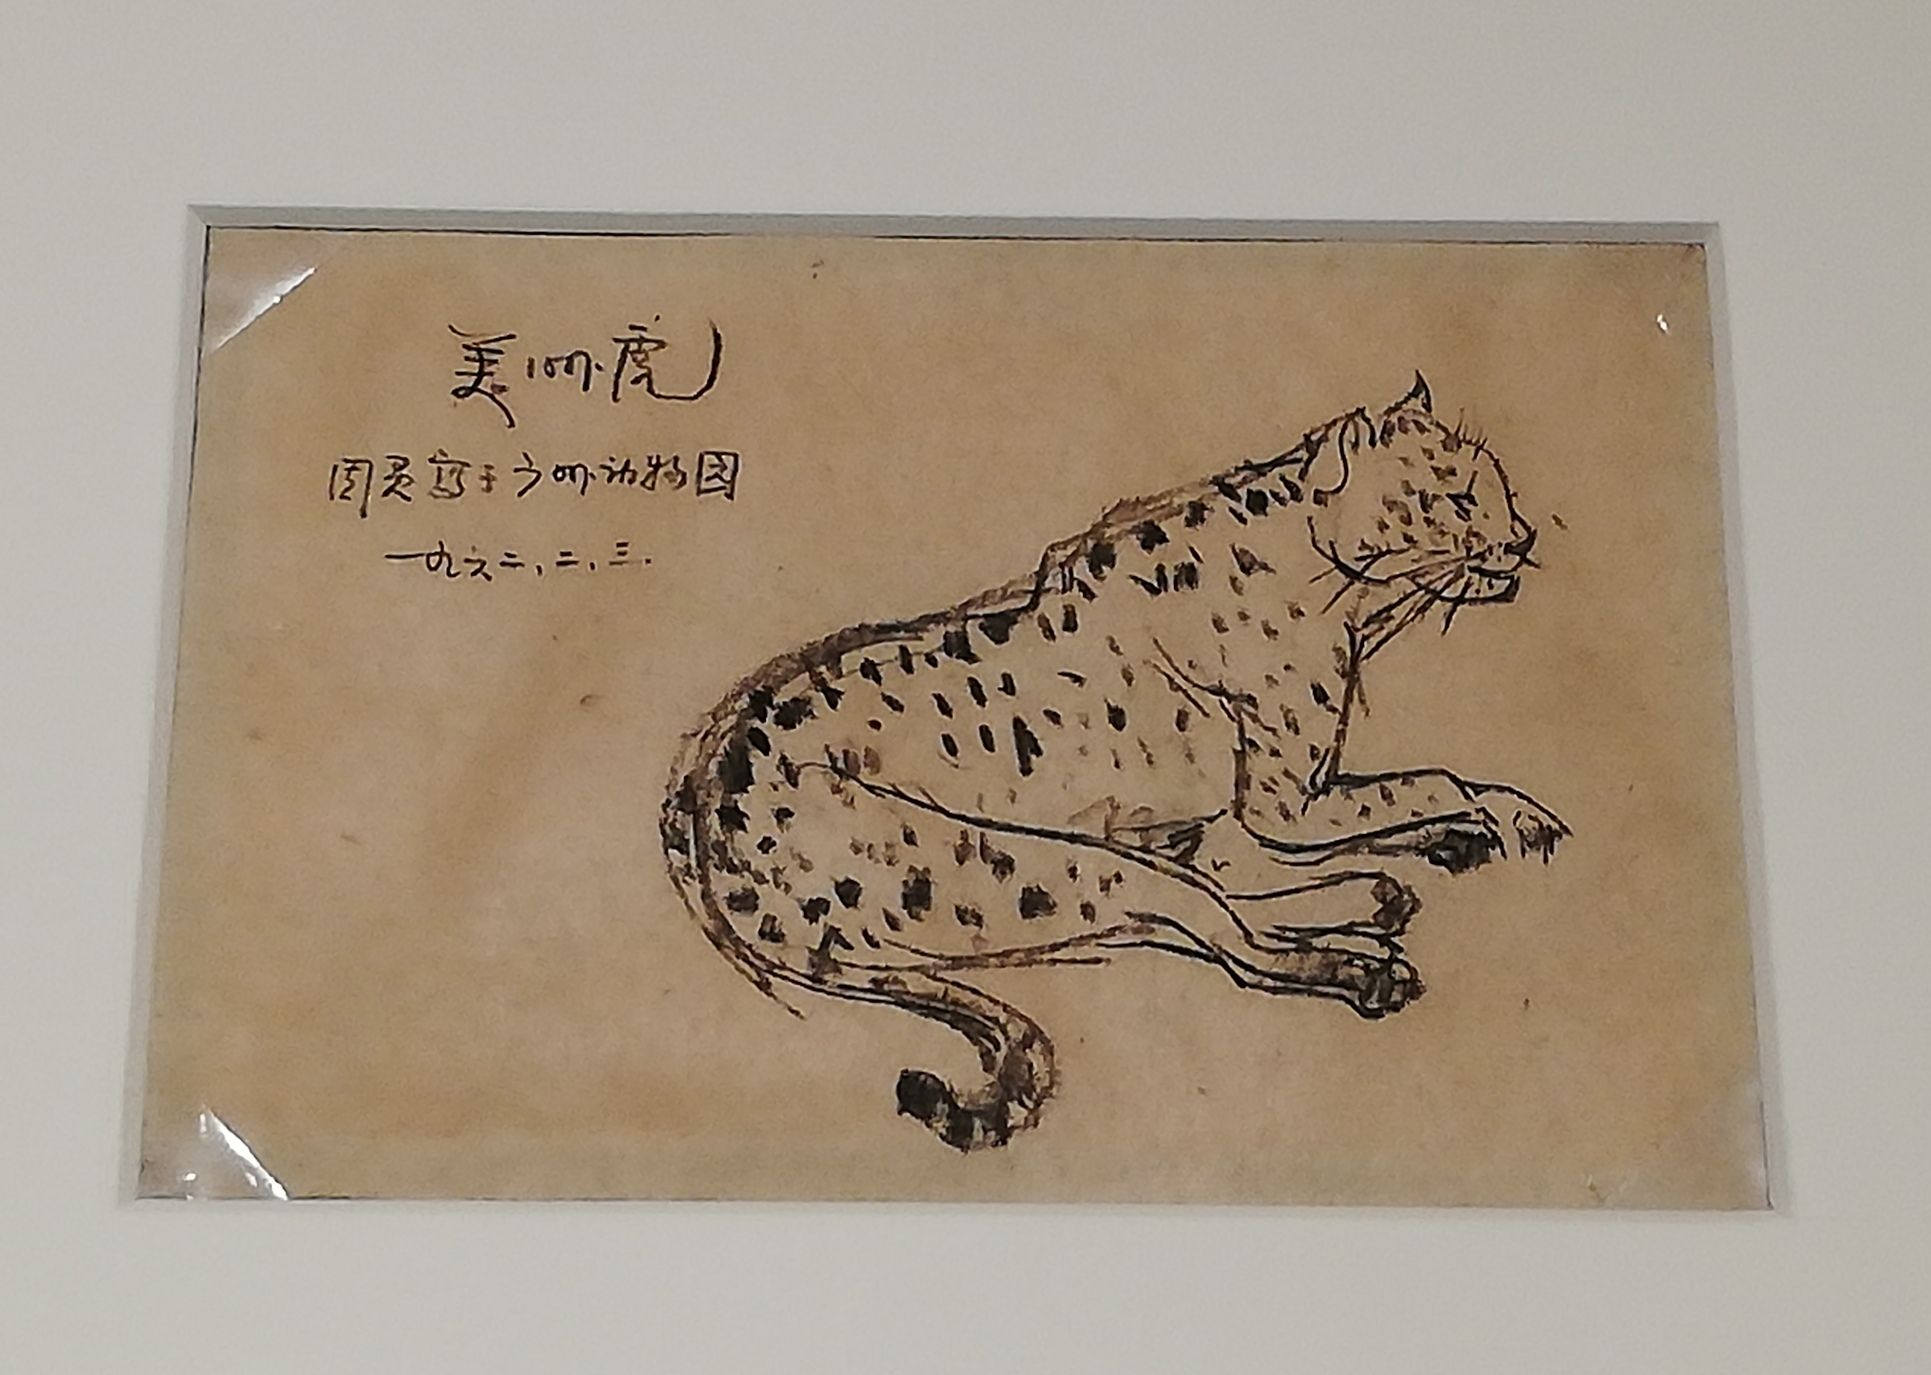 美洲虎
周灵寫于广州动物园
一九六二、二、三.